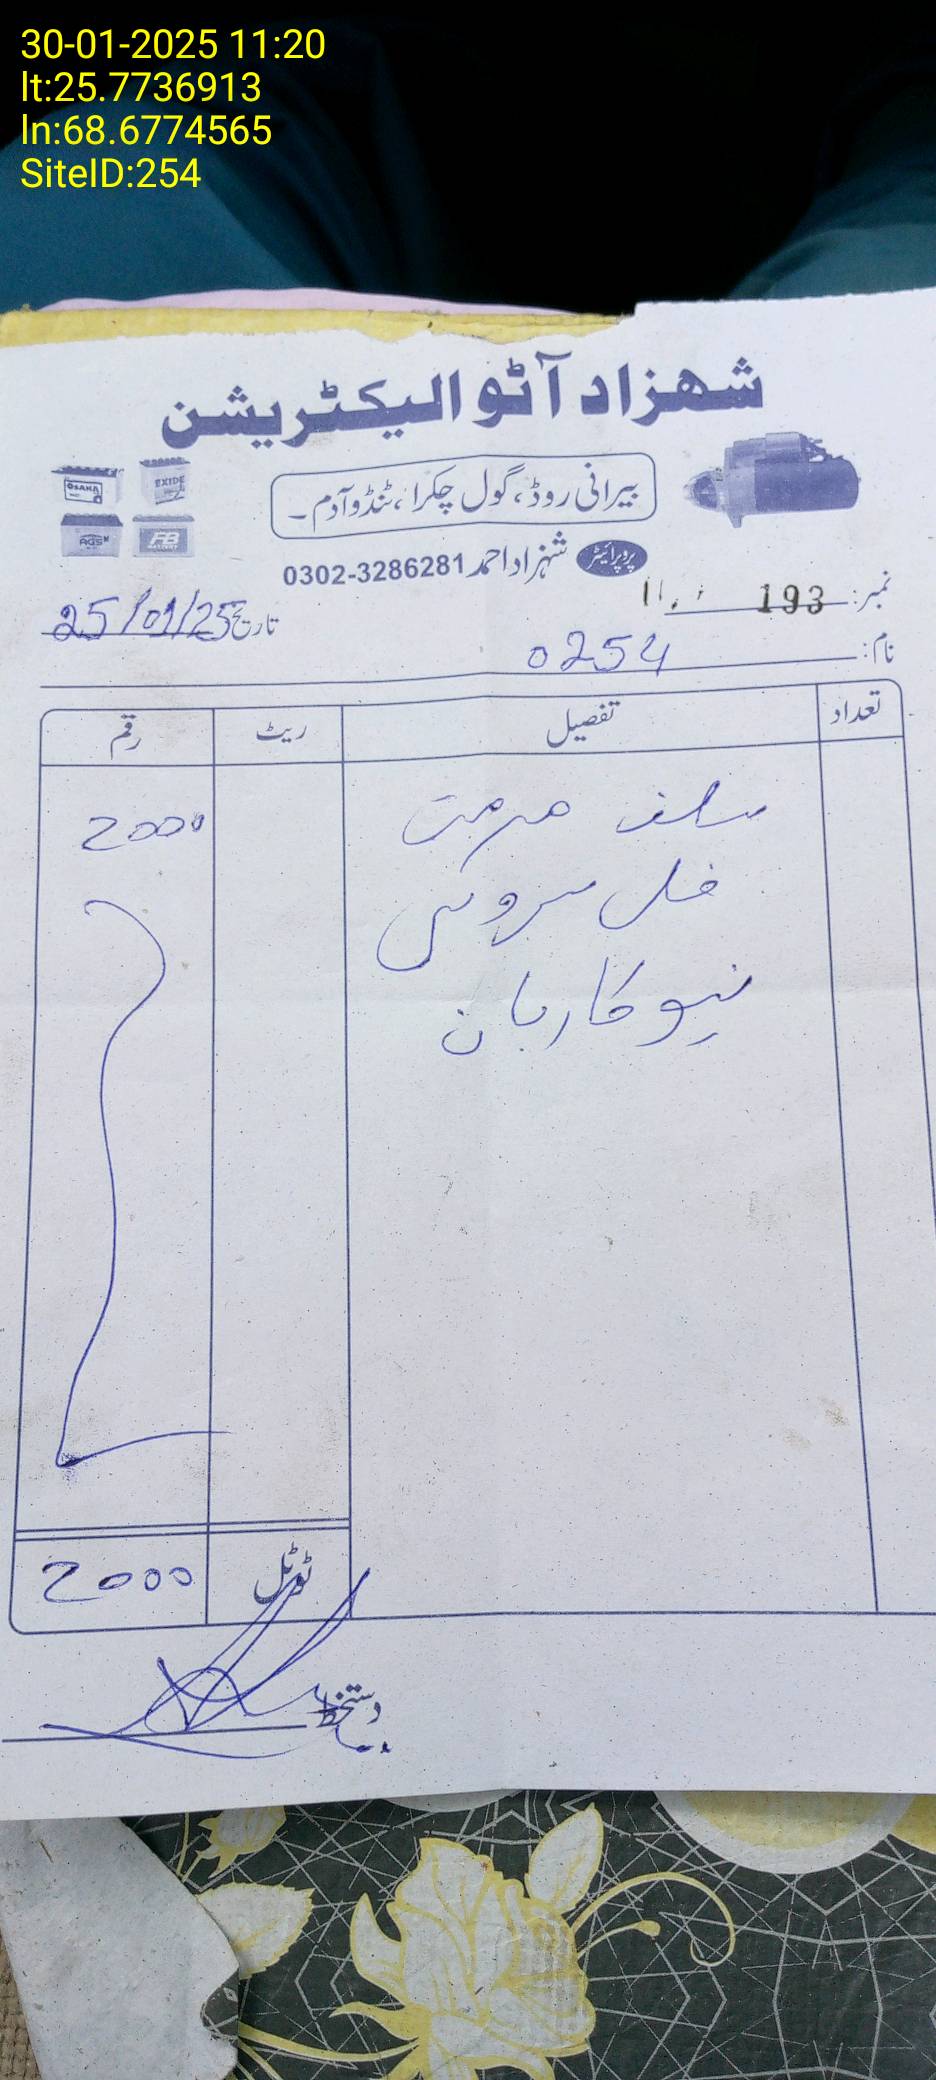 30-01-2025 11:20
lt:25.7736913
ln:68.6774565
SiteID:254
شهزاد آٹو الیکٹریشن
OSAKA EXIDE
AGS FB BATTERY
بیرانی روڈ، گول چکرا، ٹنڈوآدم۔
پروپرائیٹر شہزاد احمد 0302-3286281
نمبر: 193
تاریخ 25/01/25
نام: 0254
تعداد تفصیل ریٹ رقم
سلف مرمت 2000
فل سروس
نیو کاربان
ٹوٹل 2000
دستخط